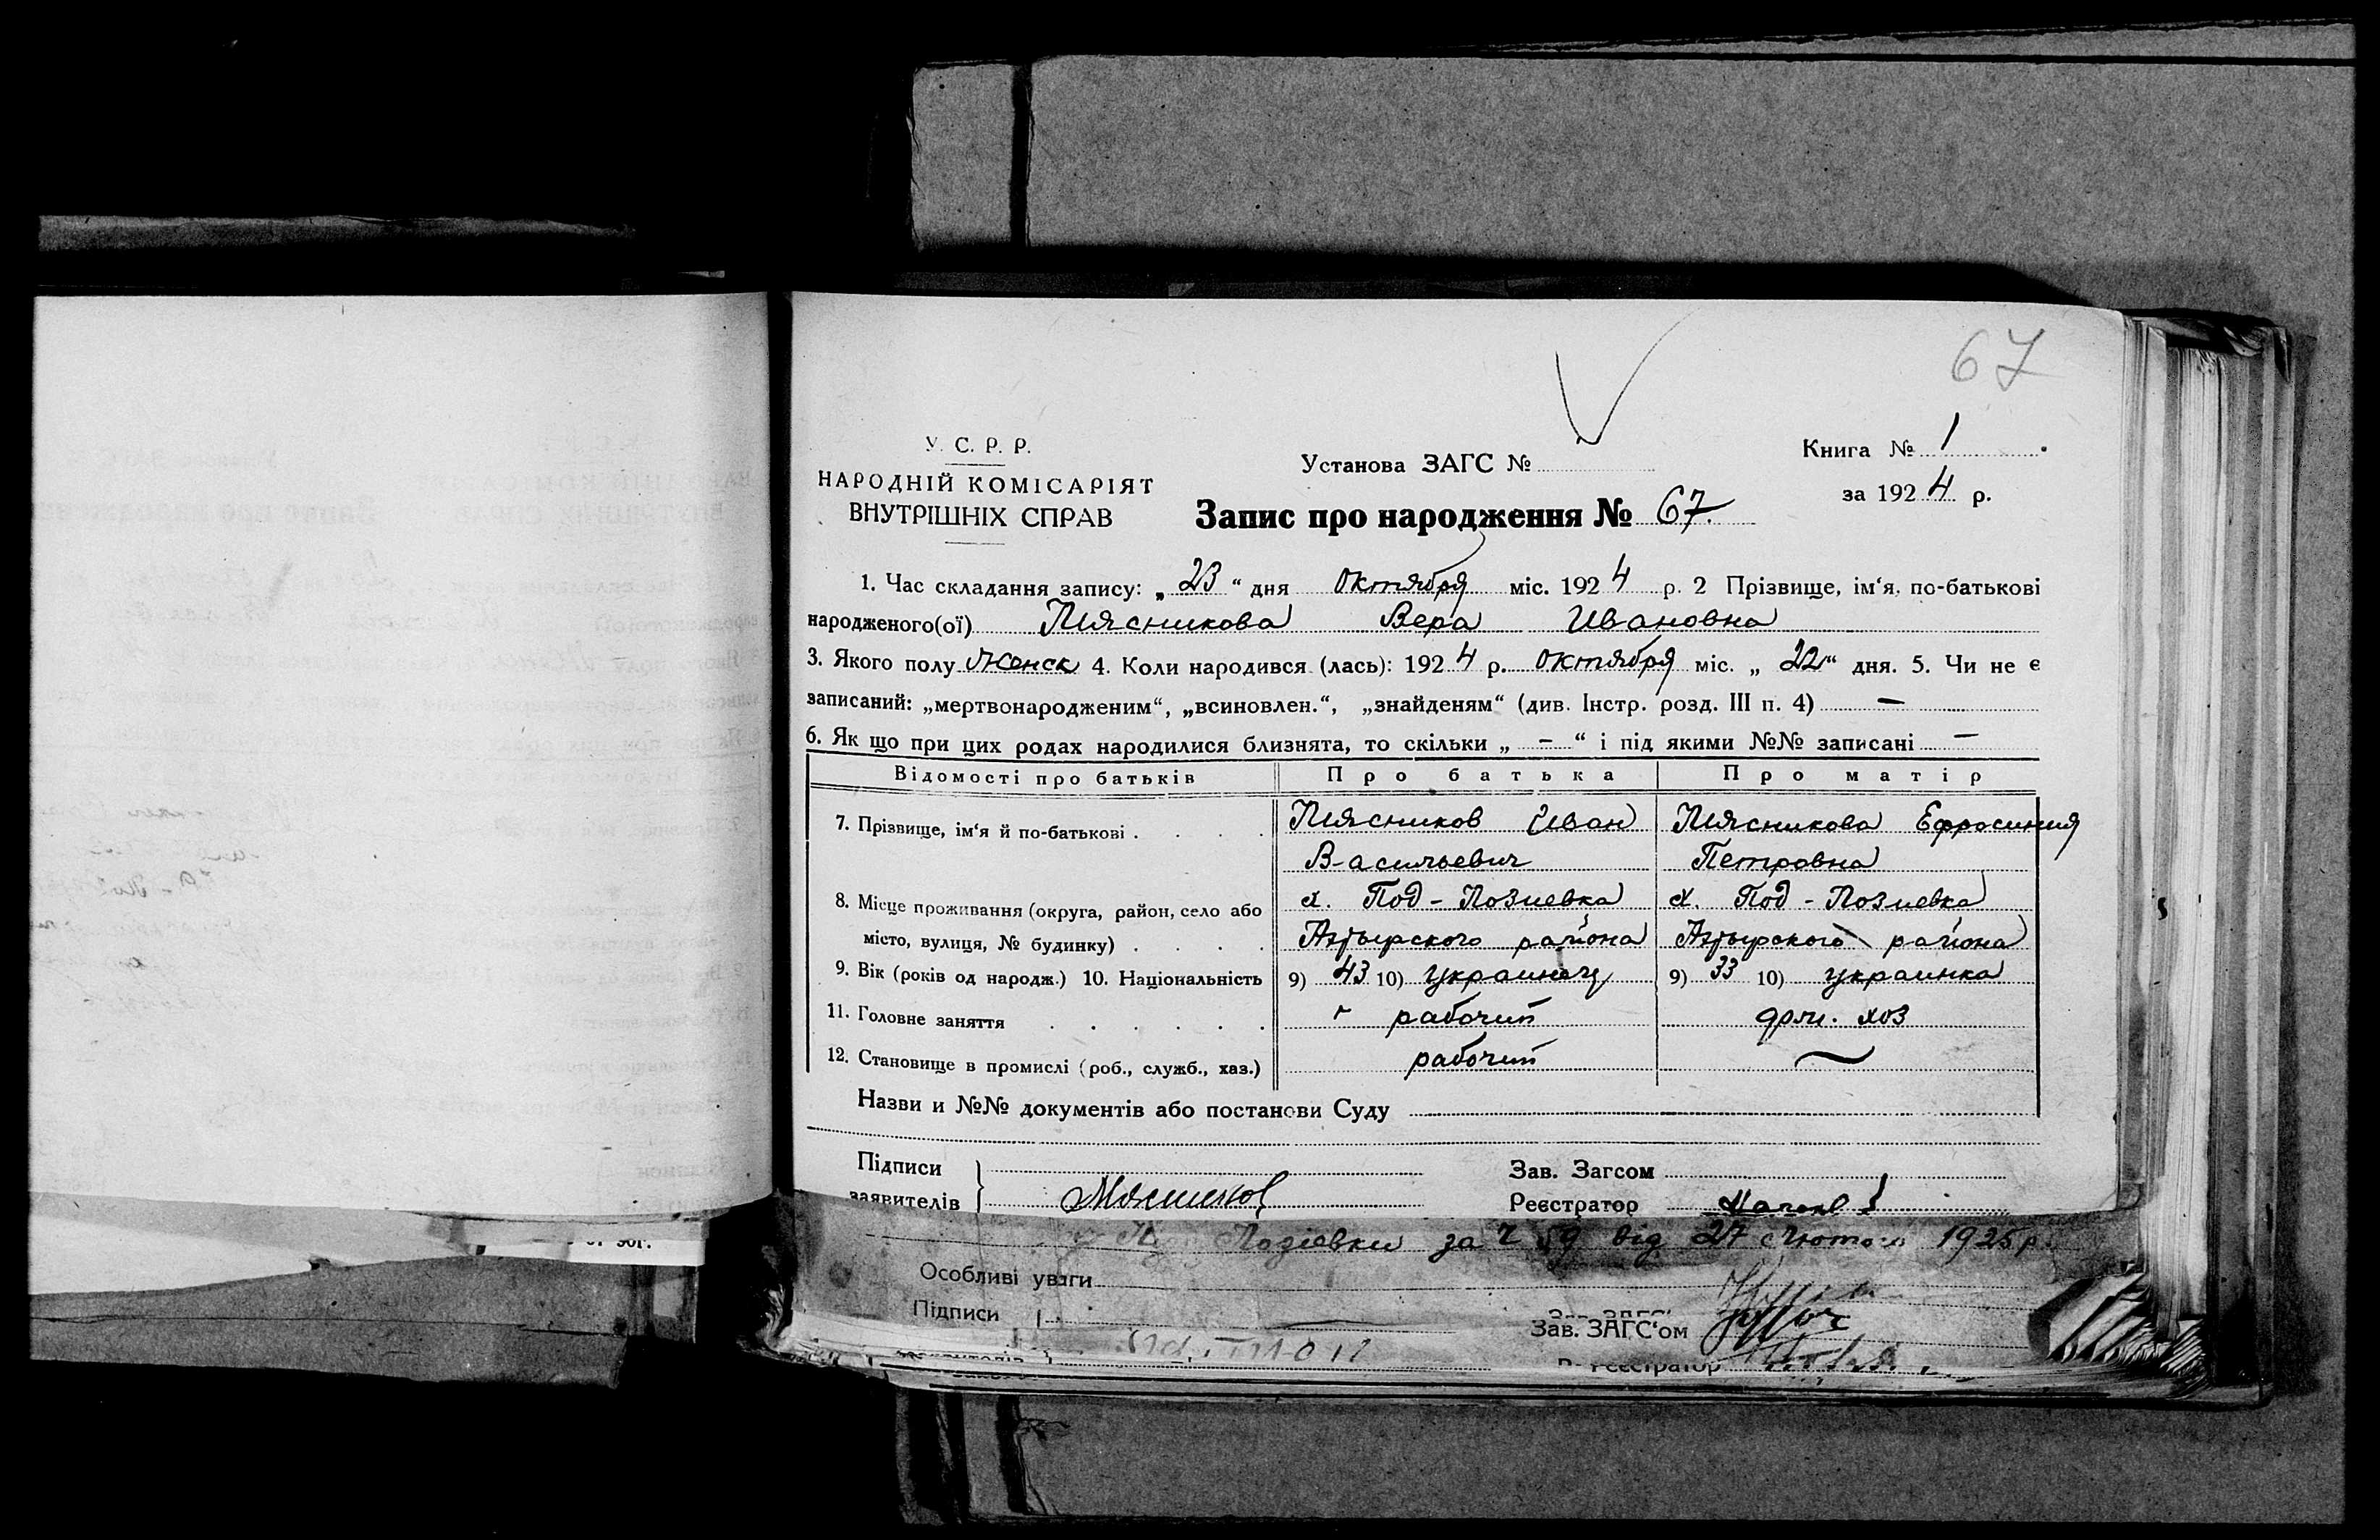 67
У. С. Р. Р.
НАРОДНІЙ КОМІСАРІЯТ
ВНУТРІШНІХ СПРАВ
Установа ЗАГС №
Книга № 1
за 1924 р.
Запис про народження № 67.
1. Час складання запису: „ 23 “ дня Октября міс. 1924 р. 2 Прізвище, ім‘я, по-батькові
народженого(ої) Мясникова Вера Ивановна
3. Якого полу Женск 4. Коли народився (лась): 1924 р. Октября міс. „ 22 “ дня. 5. Чи не є
записаний: „мертвонародженим“, „всиновлен.“, „знайденям“ (див. Інстр. розд. III п. 4) —
6. Як що при цих родах народилися близнята, то скільки „ – “ і під якими №№ записані —
Відомості про батьків Про батька Про матір
7. Прізвище, ім‘я й по-батькові . . . . Мясников Иван Мясникова Ефросиния
Васильевич Петровна
8. Місце проживання (округа, район, село або х. Под - Лозиевка х. Под - Лозиевка
місто, вулиця, № будинку) . . . . Ахтырского района Ахтырского района
9. Вік (років од народж.) 10. Національність 9) 43 10) украинец 9) 33 10) украинка
11. Головне заняття . . . . . . рабочий дом. хоз
12. Становище в промислі (роб., служб., хаз.) рабочий ~
Назви и №№ документів або постанови Суду
Підписи
заявителів
Мясников
Зав. Загсом
Реєстратор
Лозіевки за № 59 від 27 лютого 1925 р.
Особливі уваги
Підписи
Зав. ЗАГС‘ом
Реєстратор